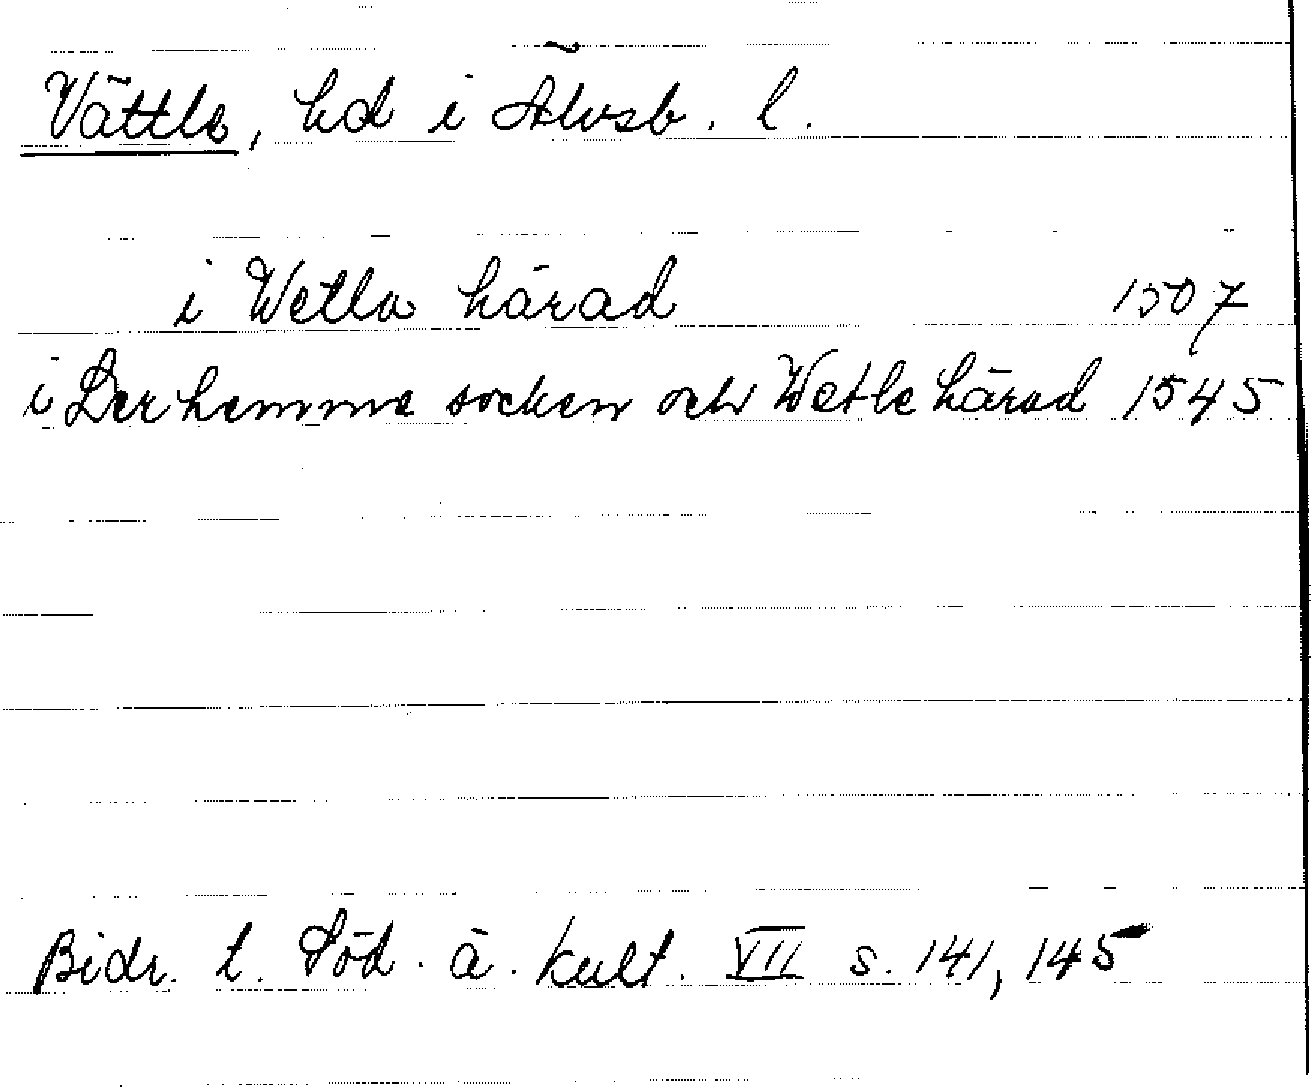 Vättle, hd i Älvsb. l.
i Wetla härad 1507
i Lerhemme socken och Wetle härad 1545
Bidr. t. Söd. ä. kult. VII s. 141, 145